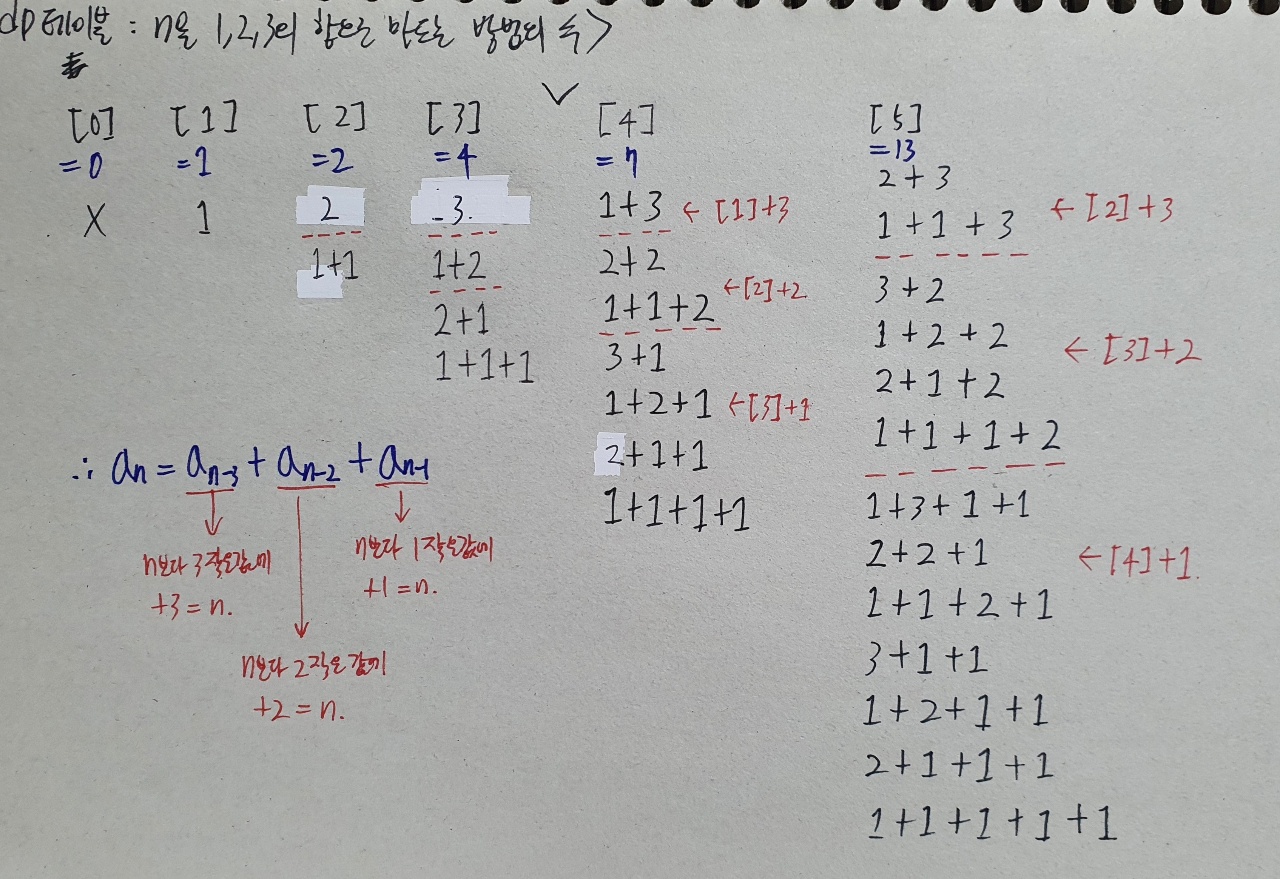 dp 테이블 : n을 1,2,3의 합으로 만드는 방법의 수>
[0] [1] [2] [3] [4] [5]
=0 =1 =2 =4 =7 =13
X
1
2
1+1
3
1+2
2+1
1+1+1
1+3 ← [1]+3
2+2
1+1+2 ←[2]+2
3+1
1+2+1 ←[3]+1
2+1+1
1+1+1+1
2+3
1+1+3 ← [2]+3
3+2
1+2+2
2+1+2 ← [3]+2
1+1+1+2
1+3+1+1
2+2+1 ← [4]+1
1+1+2+1
3+1+1
1+2+1+1
2+1+1+1
1+1+1+1+1
∴ an = an-3 + an-2 + an-1
n보다 3작은값에
+3=n.
n보다 2작은값에
+2=n.
n보다 1작은값에
+1=n.